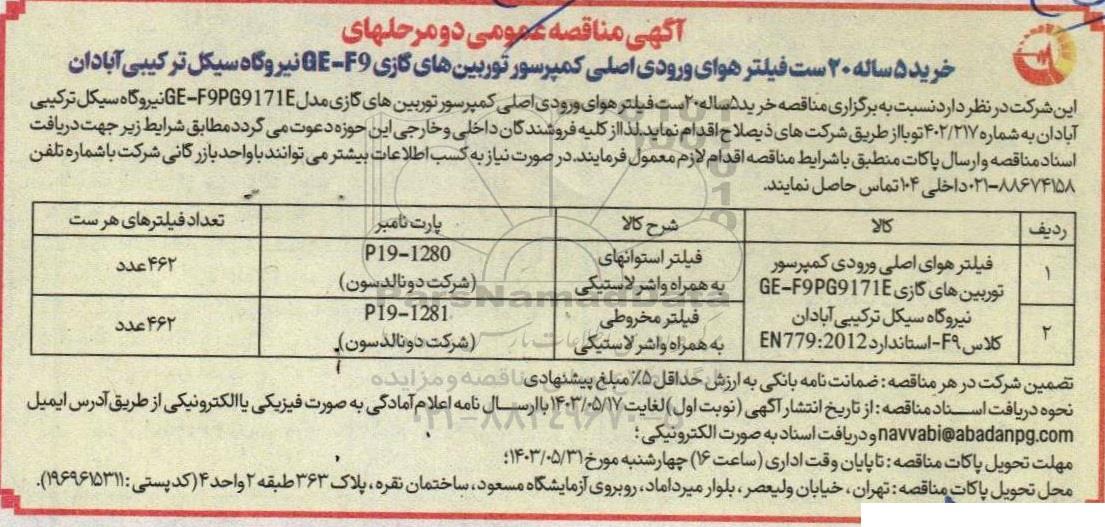 آگهی مناقصه عمومی دو مرحله‎ای
خرید ۵ ساله ۲۰ ست فیلتر هوای ورودی اصلی کمپرسور توربین های گازی GE-F9 نیروگاه سیکل ترکیبی آبادان
این شرکت در نظر دارد نسبت به برگزاری مناقصه خرید ۵ ساله ۲۰ ست فیلتر هوای ورودی اصلی کمپرسور توربین های گازی مدل GE-F9PG9171E نیروگاه سیکل ترکیبی
آبادان به شماره ۴۰۲/۲۱۷ تو با از طریق شرکت های ذیصلاح اقدام نماید. لذا از کلیه فروشندگان داخلی و خارجی این حوزه دعوت می گردد مطابق شرایط زیر جهت دریافت
اسناد مناقصه و ارسال پاکات منطبق با شرایط مناقصه اقدام لازم معمول فرمایند. در صورت نیاز به کسب اطلاعات بیشتر می توانند با واحد بازرگانی شرکت با شماره تلفن
۰۲۱-۸۸۶۷۴۱۵۸ داخلی ۱۰۴ تماس حاصل نمایند.
ردیف کالا شرح کالا پارت نامبر تعداد فیلترهای هر ست
۱ فیلتر هوای اصلی ورودی کمپرسور توربین های گازی GE-F9PG9171E فیلتر استوانه‎ای به همراه واشر لاستیکی P19-1280 (شرکت دونالدسون) ۴۶۲ عدد
۲ نیروگاه سیکل ترکیبی آبادان کلاس F9-استاندارد EN779:2012 فیلتر مخروطی به همراه واشر لاستیکی P19-1281 (شرکت دونالدسون) ۴۶۲ عدد
تضمین شرکت در هر مناقصه : ضمانت نامه بانکی به ارزش حداقل ۵٪ مبلغ پیشنهادی
نحوه دریافت اسناد مناقصه : از تاریخ انتشار آگهی (نوبت اول) لغایت ۱۴۰۳/۰۵/۱۷ با ارسال نامه اعلام آمادگی به صورت فیزیکی یا الکترونیکی از طریق آدرس ایمیل
navvabi@abadanpg.com و دریافت اسناد به صورت الکترونیکی ؛
مهلت تحویل پاکات مناقصه : تا پایان وقت اداری (ساعت ۱۶) چهارشنبه مورخ ۱۴۰۳/۰۵/۳۱؛
محل تحویل پاکات مناقصه : تهران ، خیابان ولیعصر ، بلوار میرداماد ، روبروی آزمایشگاه مسعود ، ساختمان نقره ، پلاک ۳۶۳ طبقه ۲ واحد ۴ (کد پستی : ۱۹۶۹۶۱۵۳۱۱).
ParsNamadData